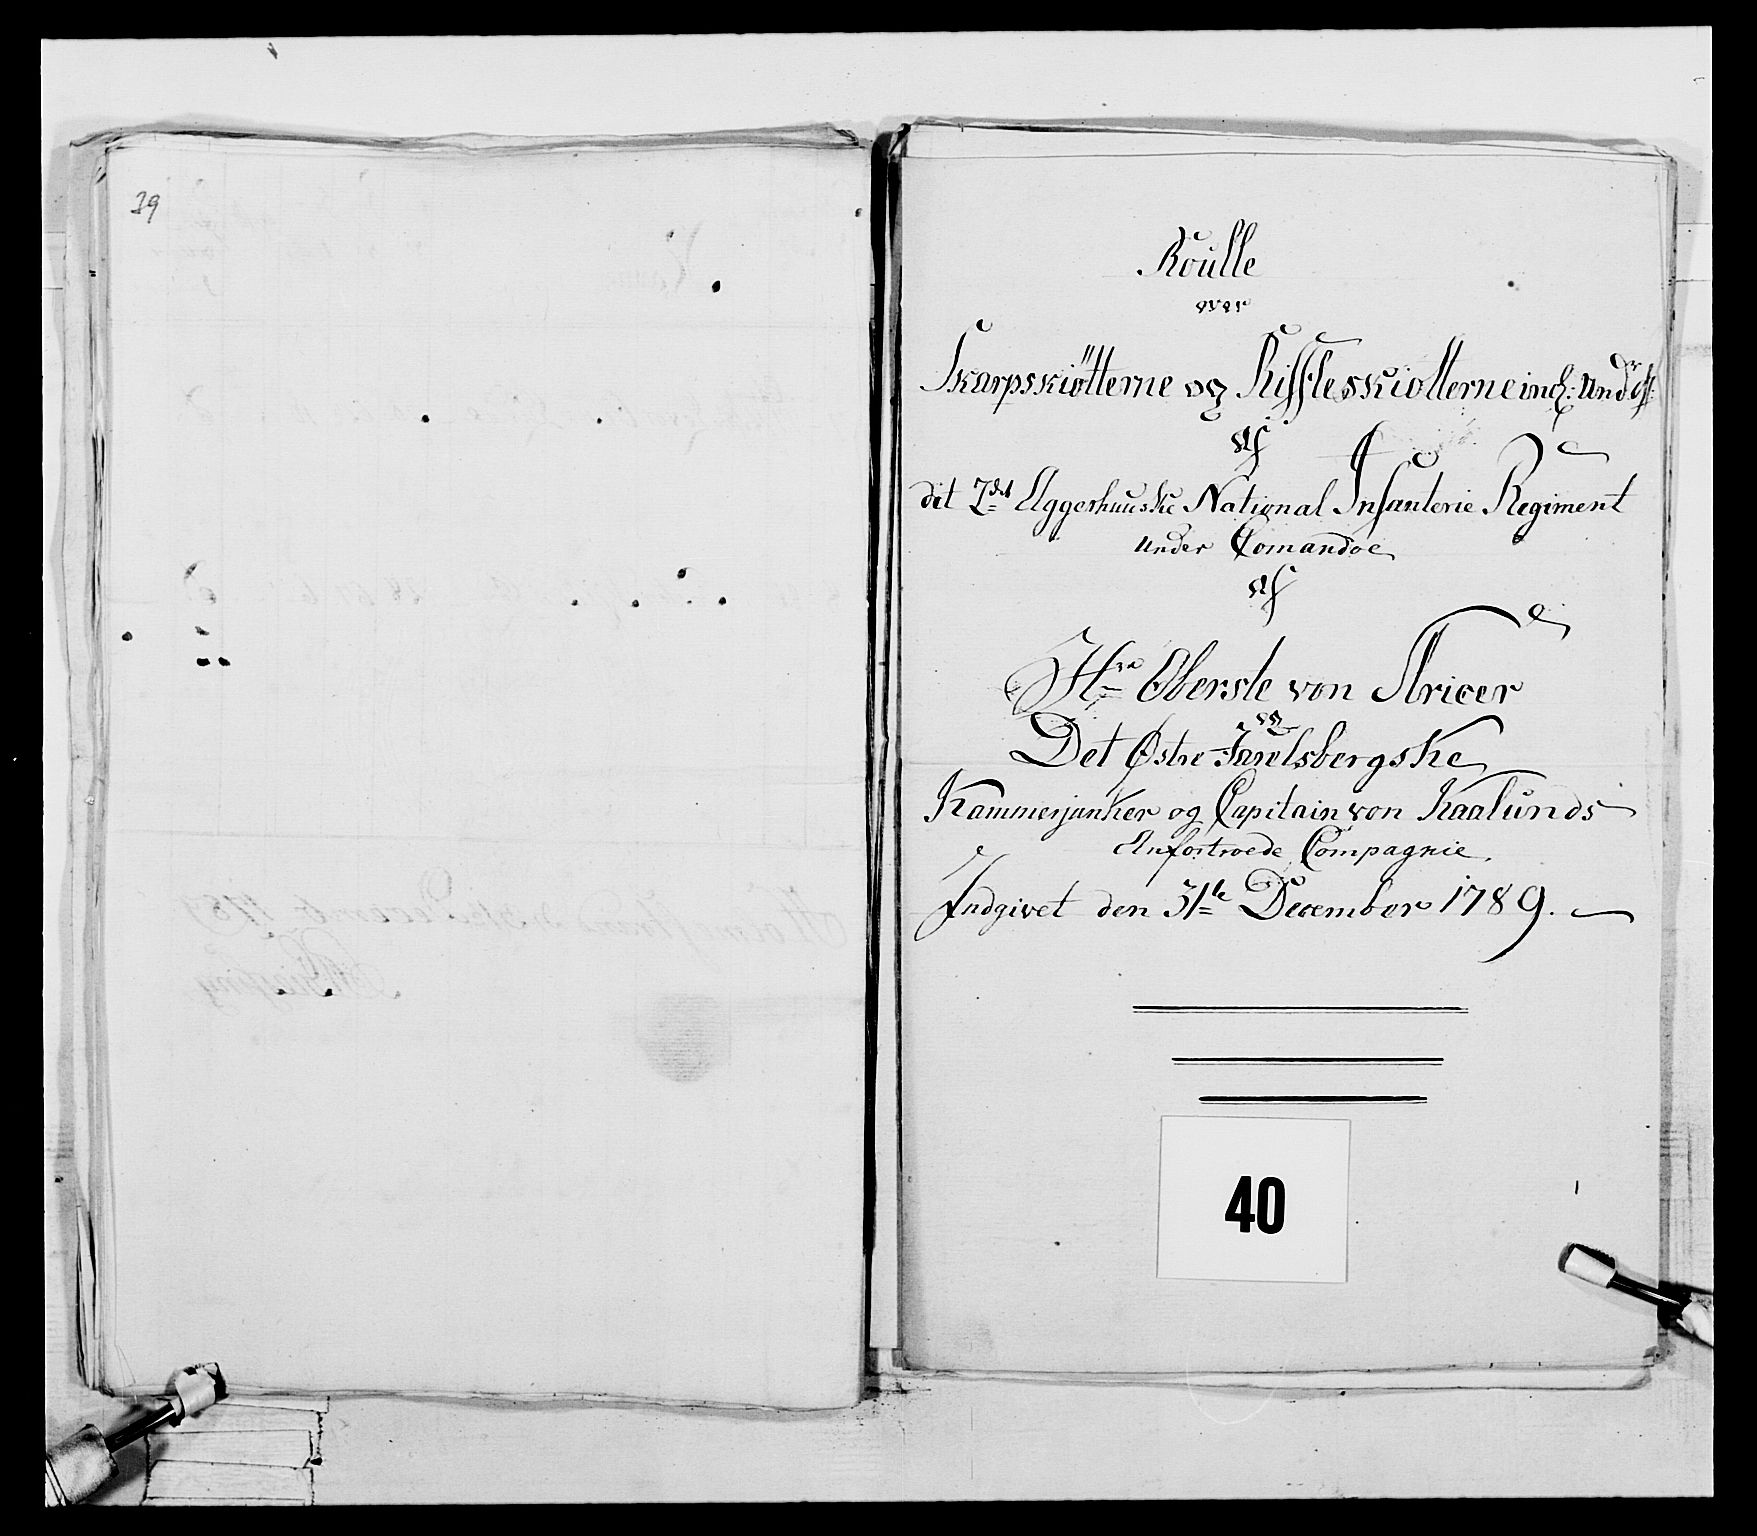 39
Roulle
over
Skarpskiötterne og Riffleskiotterne incl: Undr off:
af
dit 2det Aggerhuuske National Infanterie Regiment
under Comandoe
af
Hrr Oberste von Kricer
og
Det Østre Jarelsbergske
Kammerjunker og Capitain von Kaalunds
Anfortroede Compagnie.
Indgivet den 31te December 1789.
40